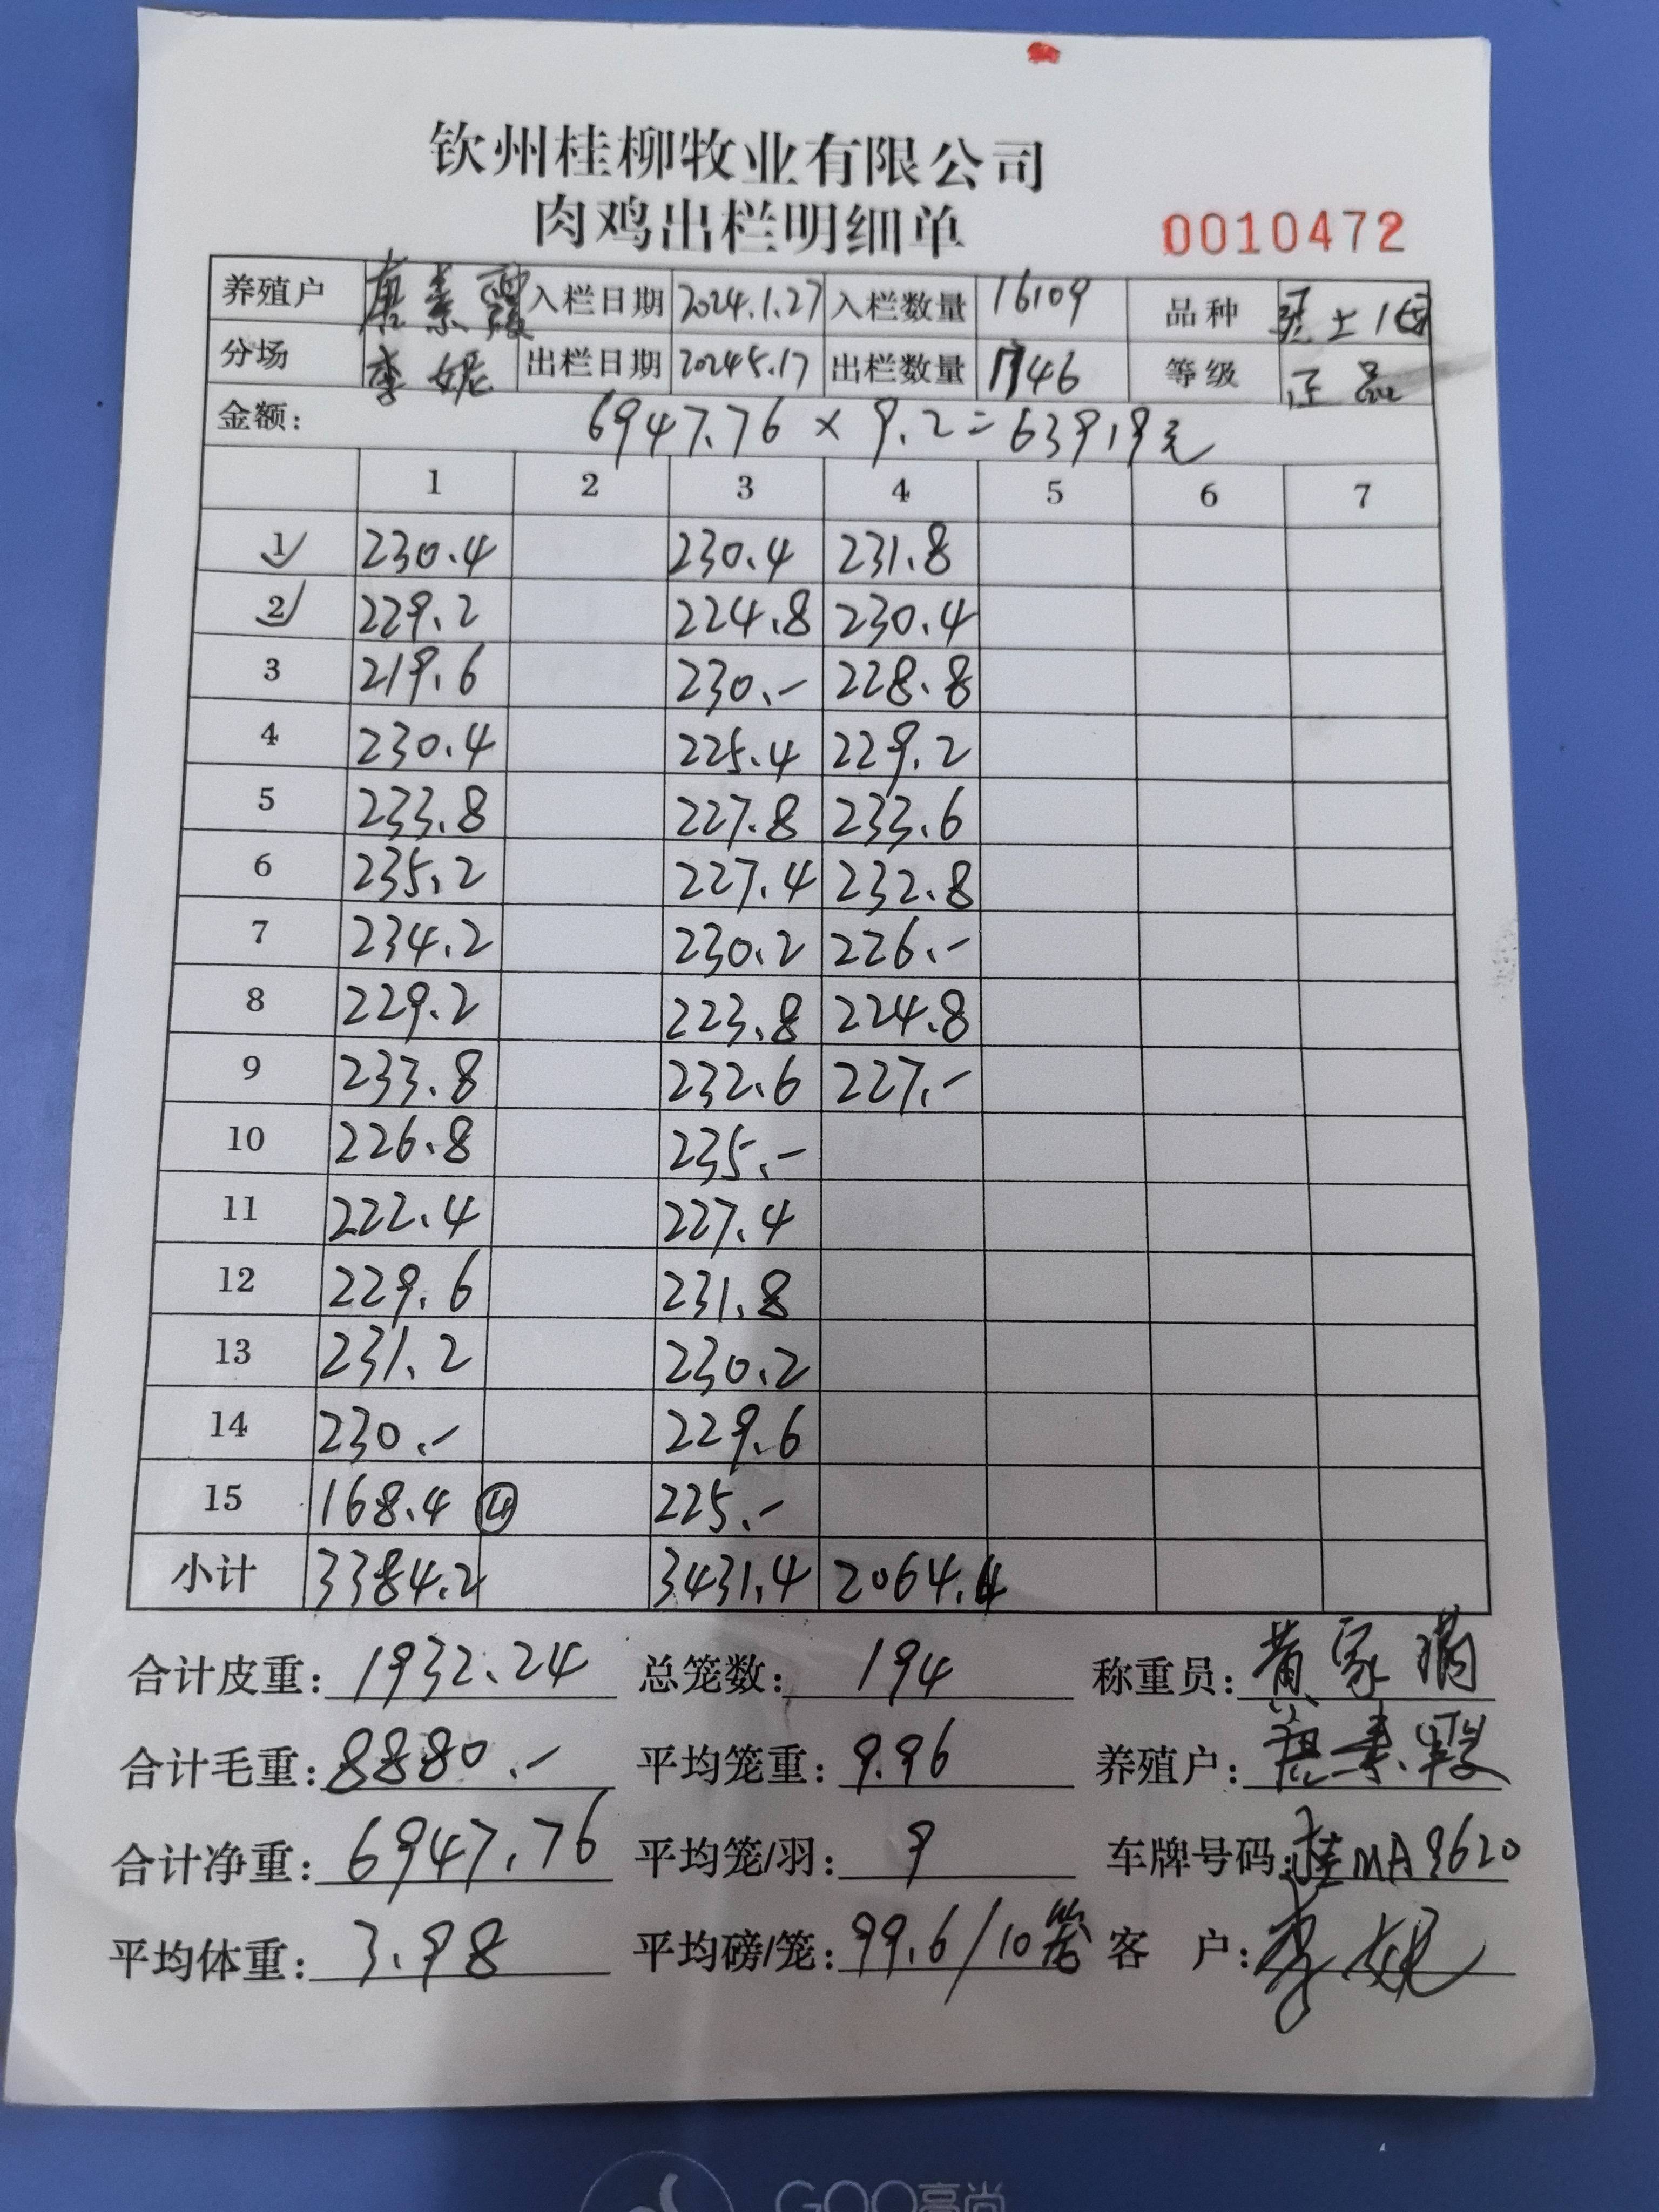 钦州桂柳牧业有限公司
肉鸡出栏明细单 0010472
养殖户 唐素霞 入栏日期 2024.1.27 入栏数量 16109 品种 土1
分场 李妮 出栏日期 2024.5.17 出栏数量 1746 等级 正品
金额: 6947.76 × 9.2 = 63919元
1 2 3 4 5 6 7
1 230.4 230.4 231.8
2 229.2 224.8 230.4
3 219.6 230.- 228.8
4 230.4 225.4 229.2
5 233.8 227.8 233.6
6 235.2 227.4 232.8
7 234.2 230.2 226.-
8 229.2 223.8 224.8
9 233.8 232.6 227.-
10 226.8 235.-
11 222.4 227.4
12 229.6 231.8
13 231.2 230.2
14 230.- 229.6
15 168.4 ④ 225.-
小计 3384.2 3431.4 2064.4
合计皮重: 1932.24 总笼数: 194 称重员: 黄家
合计毛重: 8880.- 平均笼重: 9.96 养殖户: 唐素霞
合计净重: 6947.76 平均笼/羽: 9 车牌号码: 桂MA9620
平均体重: 3.98 平均磅/笼: 99.6/10 客 户: 李妮
GOO高尚